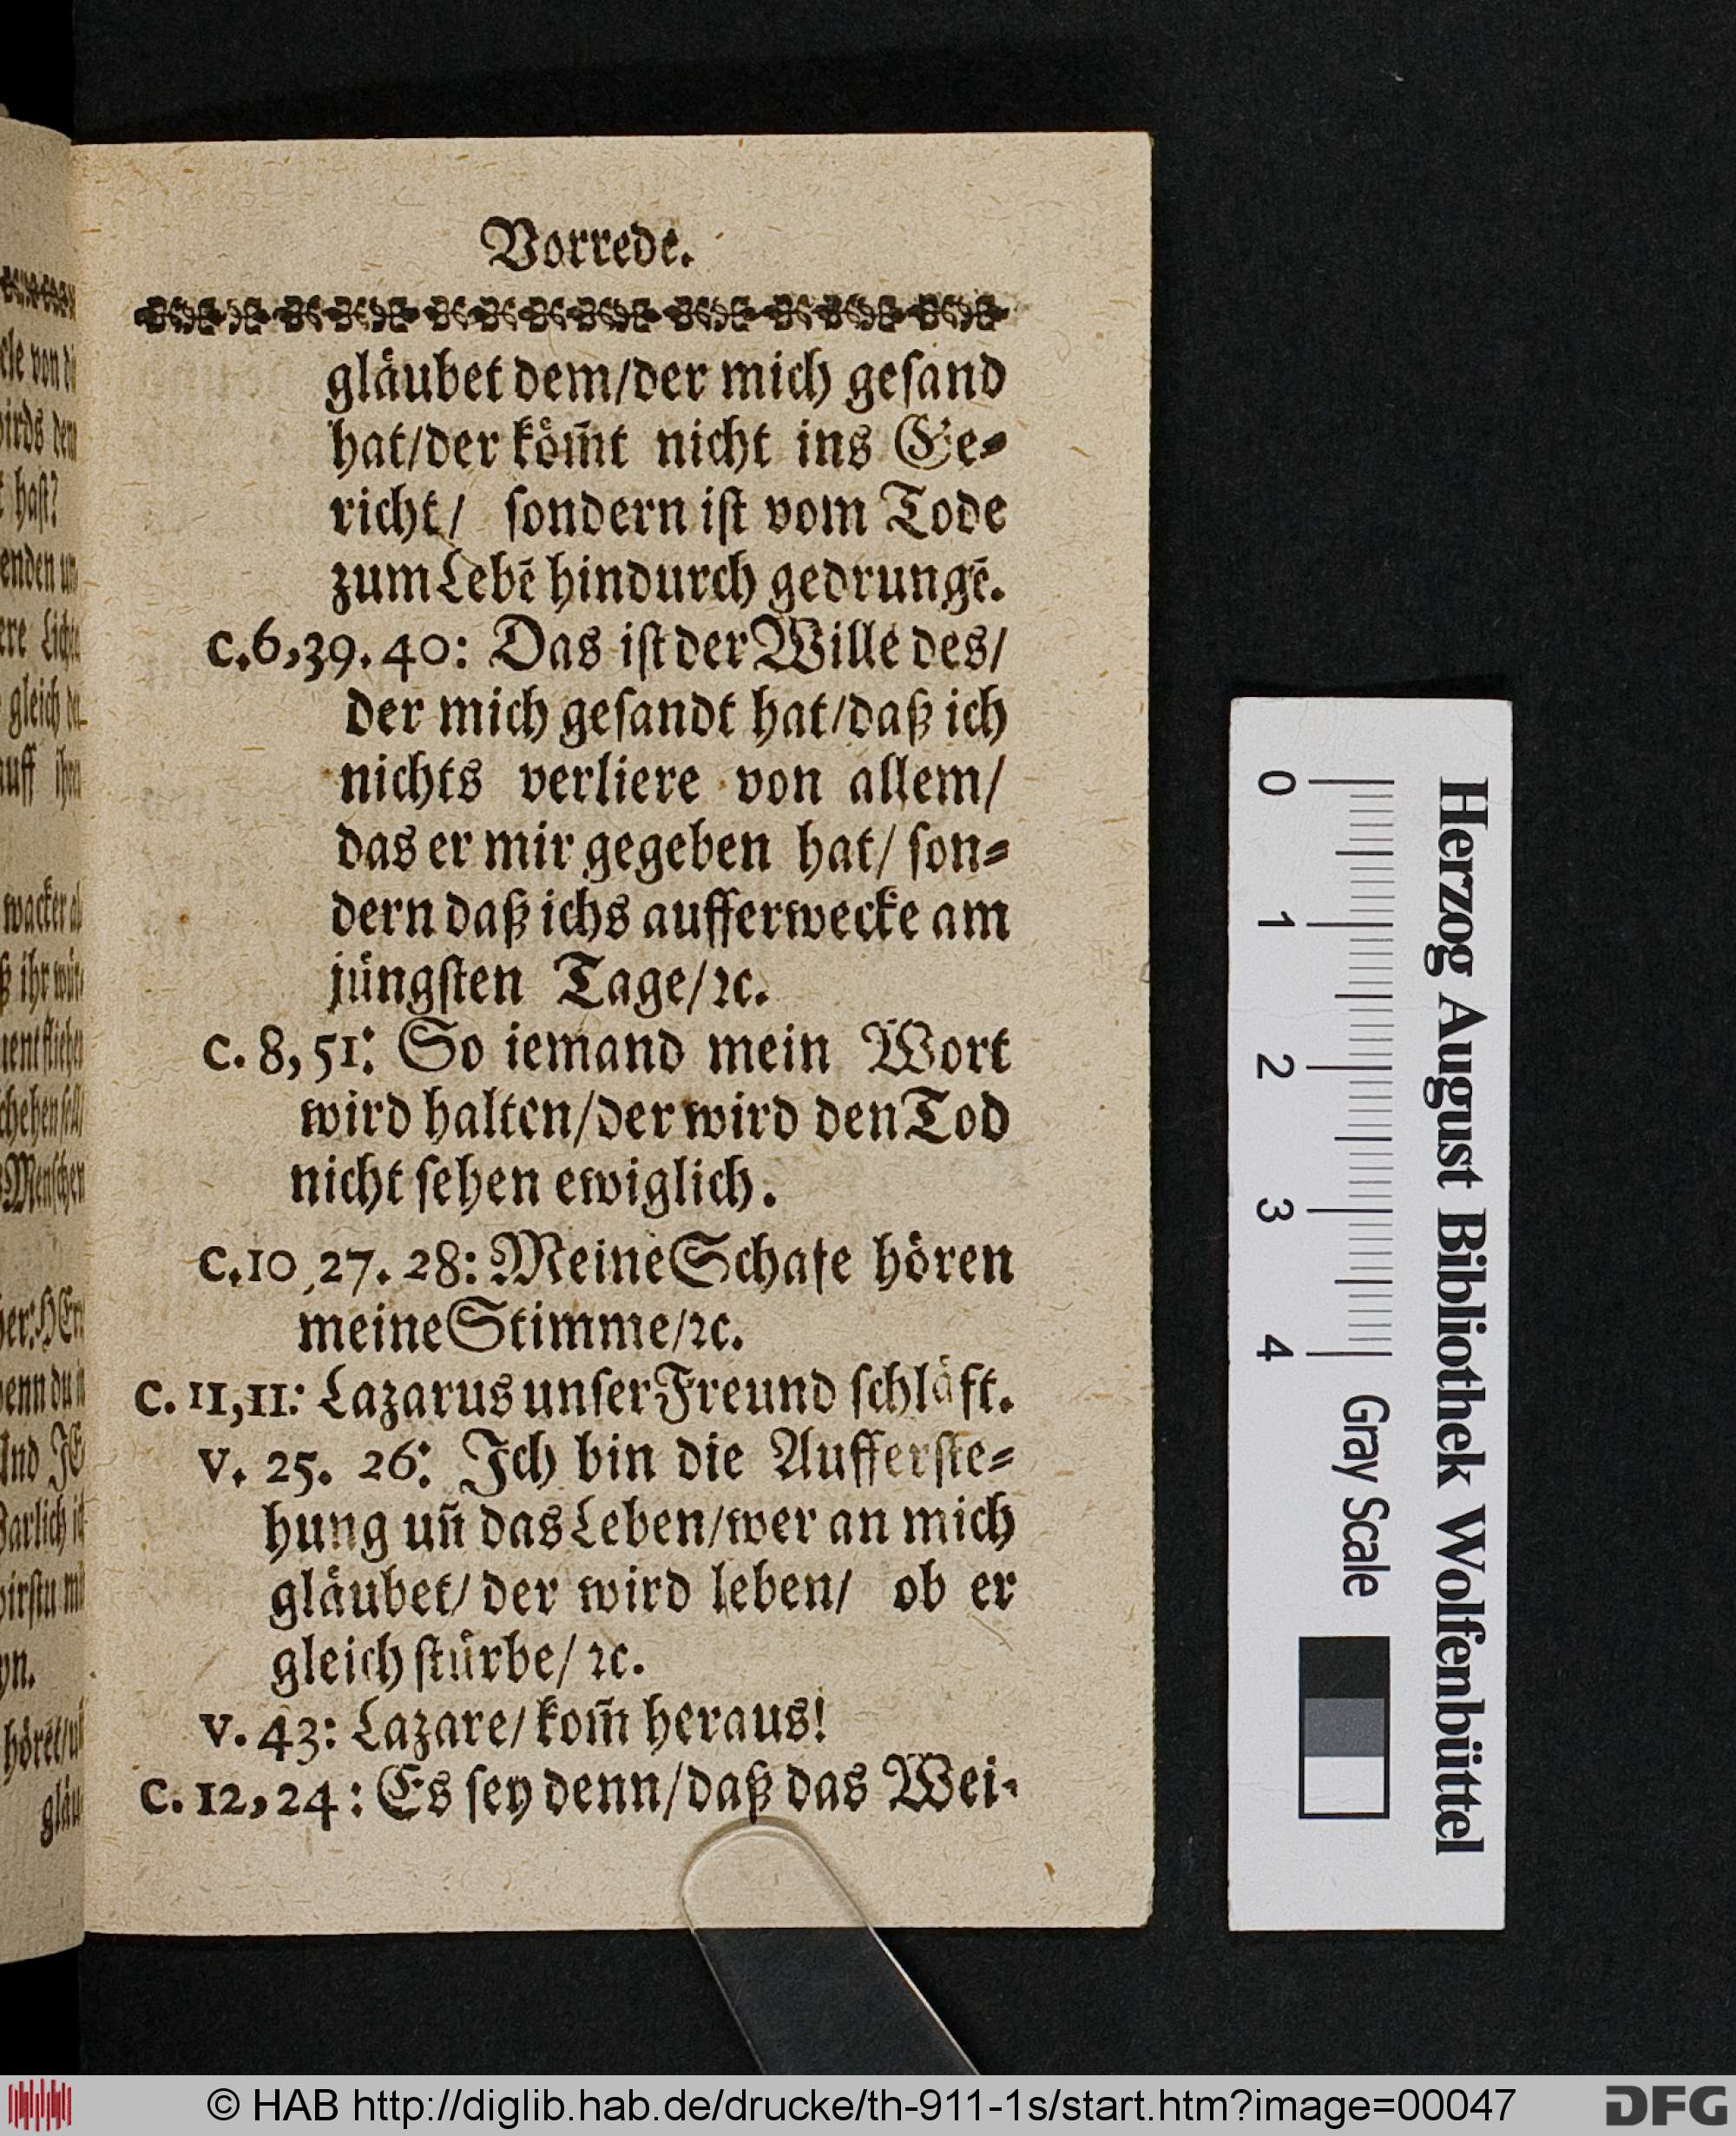 Vorrede.
glaͤubet dem/der mich geſand
hat/der koͤm̃t nicht ins Ge⸗
richt/ ſondern iſt vom Tode
zum Lebē hindurch gedrungē.
c.6,39.40: Das iſt der Wille des/
der mich geſandt hat/daß ich
nichts verliere von allem/
das er mir gegeben hat/ ſon⸗
dern daß ichs aufferwecke am
juͤngſten Tage/ꝛc.
c. 8, 51: So iemand mein Wort
wird halten/der wird den Tod
nicht ſehen ewiglich.
c.10,27.28: Meine Schafe hoͤren
meine Stimme/ꝛc.
c. 11,11: Lazarus unſer Freund ſchlaͤft.
v. 25. 26: Ich bin die Aufferſte⸗
hung uñ das Leben/wer an mich
glaͤubet/ der wird leben/ ob er
gleich ſtuͤrbe/ ꝛc.
v. 43: Lazare/ kom̃ heraus!
C. 12,24: Es ſey denn/daß das Wei⸗
Herzog August Bibliothek Wolfenbüttel
0 1 2 3 4 Gray Scale
© HAB http://diglib.hab.de/drucke/th-911-1s/start.htm?image=00047
DFG